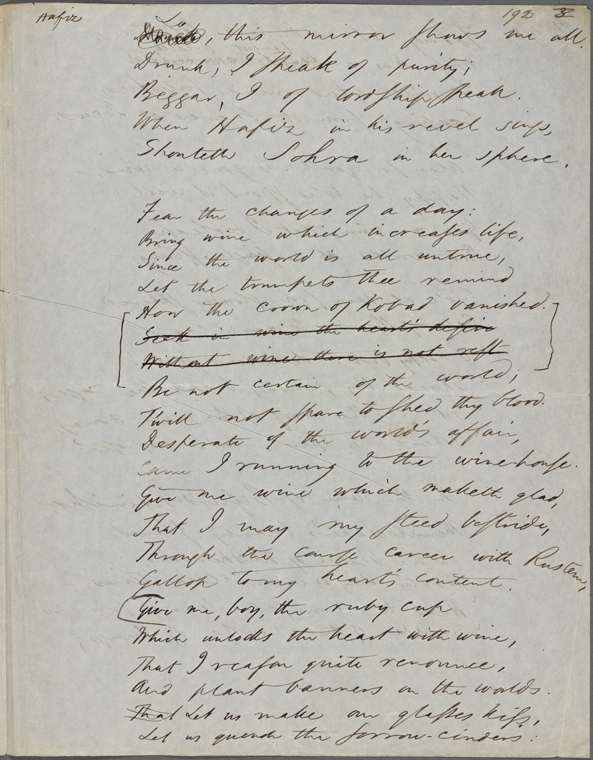 Hafiz
192 3
Lo, this mirror shows me all.
Drunk, I speak of purity;
Beggar, I of lordship speak.
When Hafiz in his revel sings,
Shouteth Sohra in her sphere.
Fear the changes of a day:
Bring wine which increases life,
Since the world is all untrue,
Let the trumpets thee remind
How the crown of Kobad vanished.
Seek in wine the heart's desire
Without wine there is not rest
Be not certain of the world;
Twill not spare to shed thy blood.
Desperate of the world's affair,
Came I running to the winehouse.
Give me wine which maketh glad,
That I may my steed bestride,
Through the course career with Rustem,
Gallop to my heart's content.
Give me, boy, the ruby cup
Which unlocks the heart with wine,
That I reason quite renounce,
And plant banners on the worlds.
That Let us make our glasses kiss,
Let us quench the sorrow-cinders: